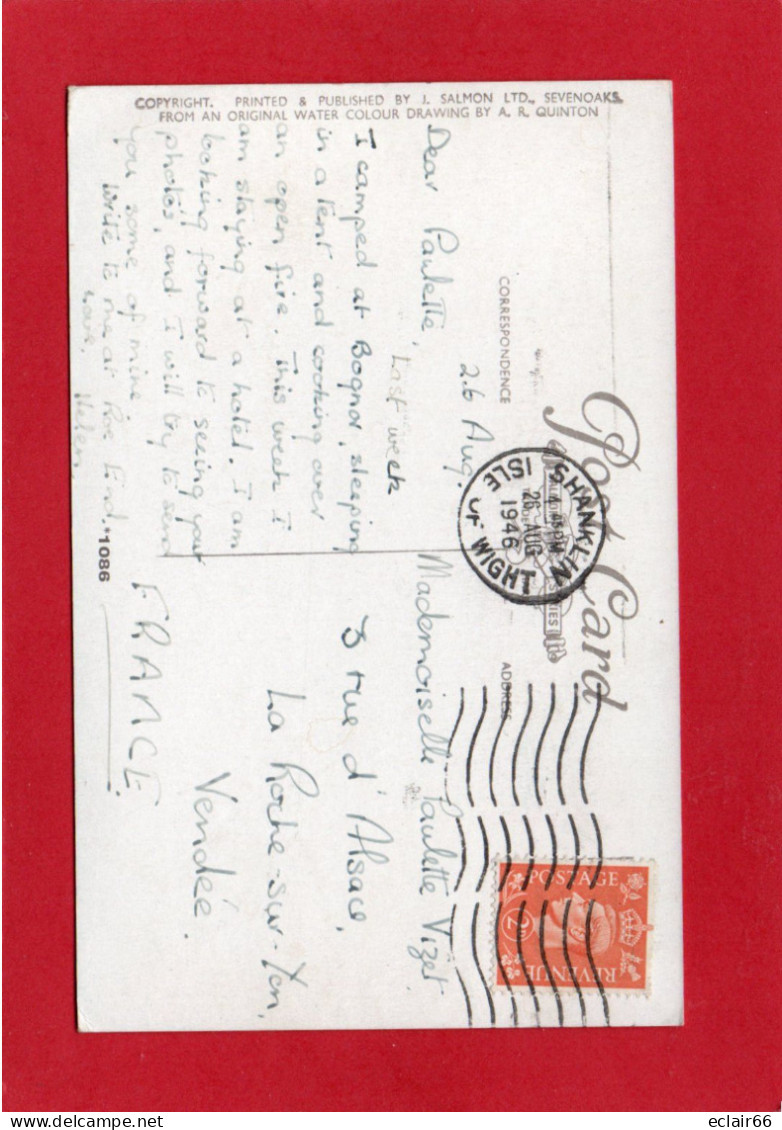 COPYRIGHT. PRINTED & PUBLISHED BY J. SALMON LTD., SEVENOAKS.
FROM AN ORIGINAL WATER COLOUR DRAWING BY A. R. QUINTON
Post Card
CORRESPONDENCE
ADDRESS
SHANKLIN
26 AUG
1946
ISLE OF WIGHT
POSTAGE
2D
REVENUE
26 Aug.
Dear Paulette,
Last week
I camped at Bognor, sleeping
in a tent and cooking over
an open fire. This week I
am staying at a hotel. I am
looking forward to seeing your
photos, and I will try to send
you some of mine.
Write to me at Roe End.
Love,
Helen.
*1086
Mademoiselle Paulette Vizet
3 rue d'Alsace,
La Roche-sur-Yon,
Vendée.
FRANCE
eclair66